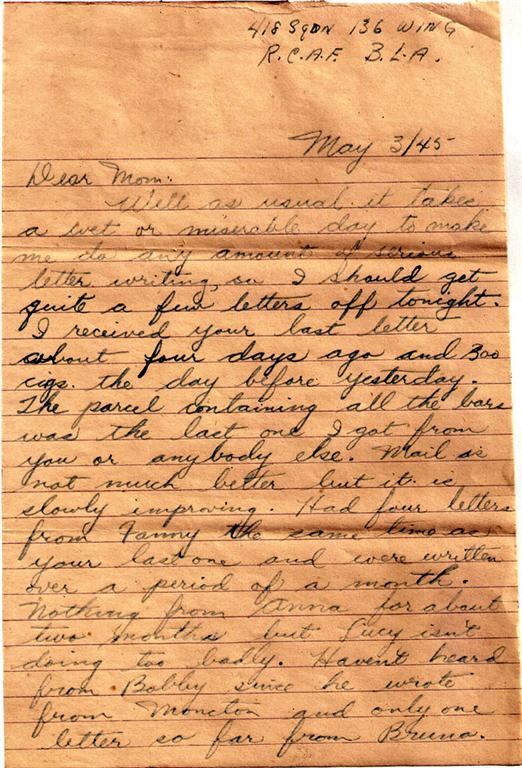 418 SQDN 136 WING
R.C.A.F. B.L.A.
May 3/45
Dear Mom:
Well as usual it takes
a wet or miserable day to make
me do any amount of serious
letter writing, so I should get
quite a few letters off tonight.
I received your last letter
about four days ago and 300
cigs. the day before yesterday.
The parcel containing all the bars
was the last one I got from
you or anybody else. Mail is
not much better but it is
slowly improving. Had four letters
from Fanny the same time as
your last one and were written
over a period of a month.
Nothing from Anna for about
two months but Lucy isn't
doing too badly. Haven't heard
from Bobby since he wrote
from Moncton and only one
letter so far from Bruno.